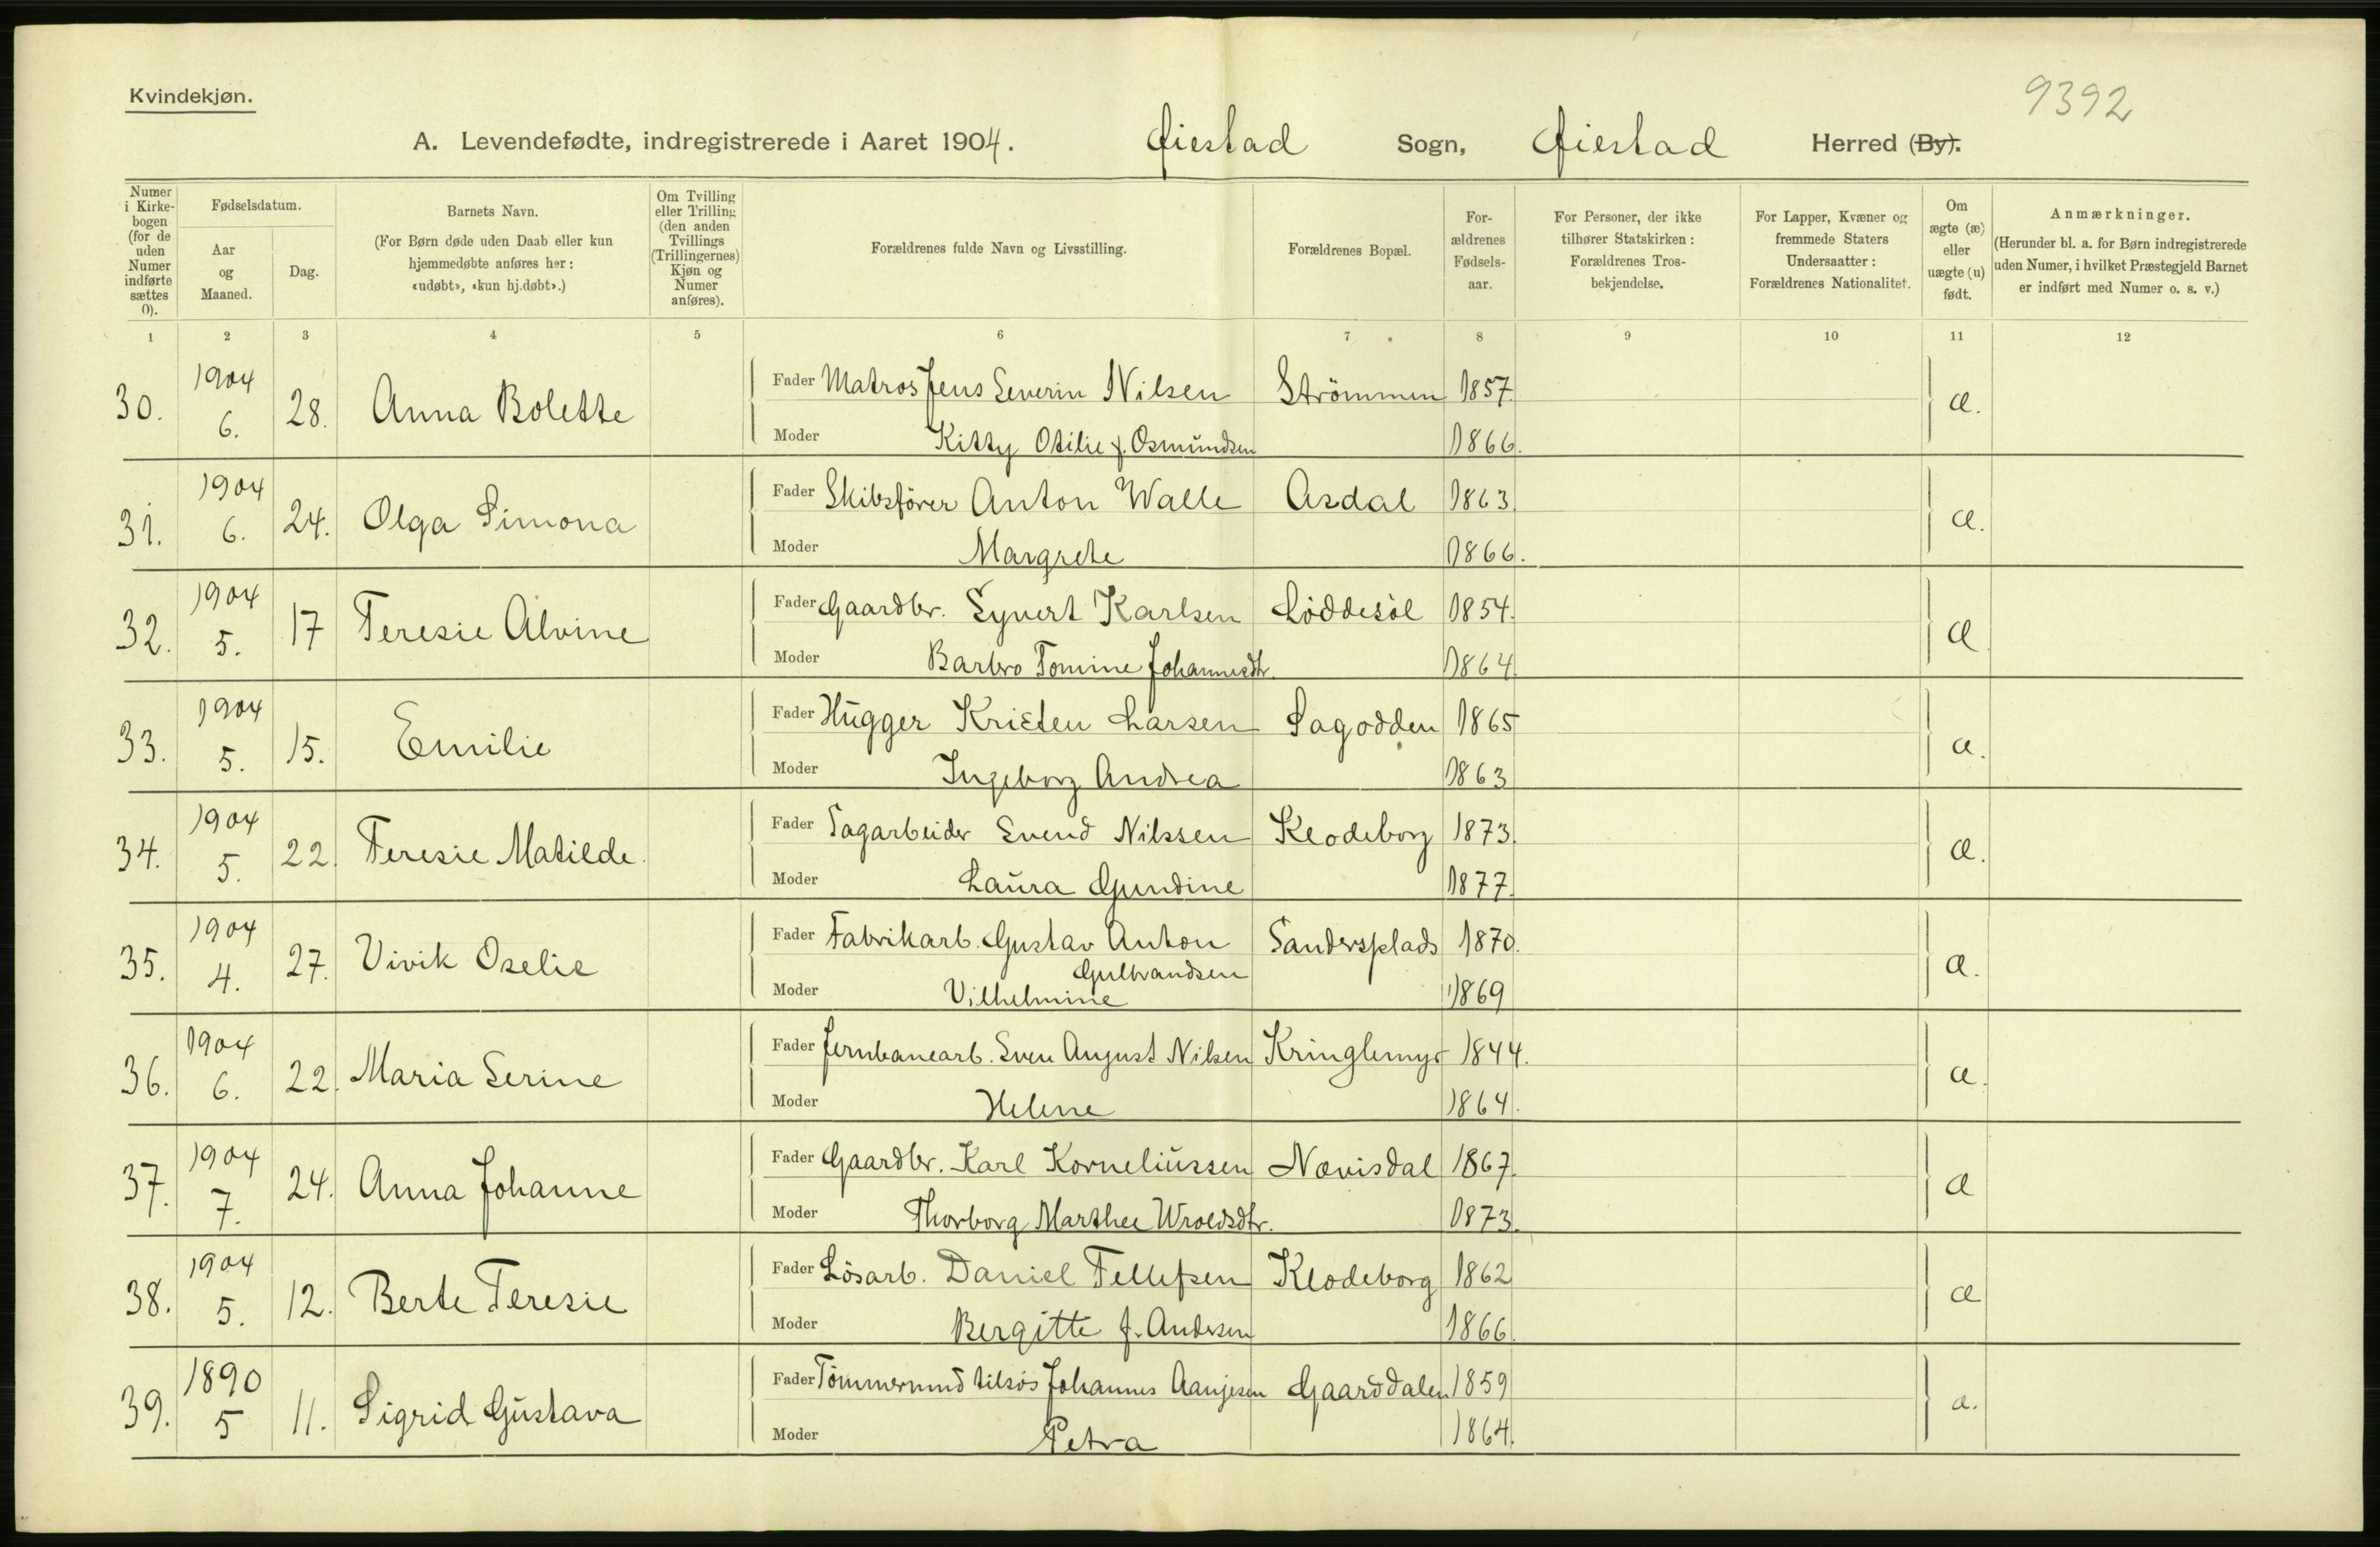 Kvindekjøn.
9392
A. Levendefødte, indregistrerede i Aaret 1904. Øiestad Sogn, Øiestad Herred (By).
Numer i Kirkebogen (for de uden Numer indførte sættes 0).
Fødselsdatum.
Aar og Maaned.
Dag.
Barnets Navn.
(For Børn døde uden Daab eller kun hjemmedøbte anføres her: «udøbt», «kun hj.døbt».)
Om Tvilling eller Trilling (den anden Tvillings (Trillingernes) Kjøn og Numer anføres).
Forældrenes fulde Navn og Livsstilling.
Forældrenes Bopæl.
For-ældrenes Fødsels-aar.
For Personer, der ikke tilhører Statskirken: Forældrenes Tros-bekjendelse.
For Lapper, Kvæner og fremmede Staters Undersaatter: Forældrenes Nationalitet.
Om ægte (æ) eller uægte (u) født.
Anmærkninger.
(Herunder bl. a. for Børn indregistrerede uden Numer, i hvilket Præstegjeld Barnet er indført med Numer o. s. v.)
1 2 3 4 5 6 7 8 9 10 11 12
30. 1904 6. 28. Anna Bolette Fader Matros Jens Severin Nilsen Strömmen 1857. æ.
Moder Kitty Otilie f. Osmundsen 1866.
31. 1904 6. 24. Olga Simona Fader Skibsfører Anton Walle Asdal 1863 æ.
Moder Margrete 1866.
32. 1904 5. 17 Teresie Alvine Fader Gaardbr. Syvert Karlsen Løddesøl 1854. æ
Moder Barbro Tomine Johannesdtr. 1864
33. 1904 5. 15. Emilie Fader Hugger Kristen Larsen Sagodden 1865 æ.
Moder Ingeborg Andrea 1863
34. 1904 5. 22. Teresie Matilde. Fader Sagarbeider Svend Nilssen Klodeborg 1873. æ.
Moder Laura Gundine 1877.
35. 1904 4. 27. Vivik Oselie Fader Fabrikarb. Gustav Anton Sandersplads 1870. æ.
Gulbrandsen
Moder Vilhelmine 1869
36. 1904 6. 22. Maria Serine Fader Jernbanearb. Sven August Nilsen Kringlemyr 1844. æ.
Moder Helene 1864.
37. 1904 7. 24. Anna Johanne Fader Gaardbr. Karl Korneliussen Nævisdal 1867. æ
Moder Thorborg Marthee Wroldsdtr. 1873.
38. 1904 5. 12. Berte Teresie Fader Lösarb. Daniel Tellefsen Klodeborg 1862 æ
Moder Bergitte f. Andersen 1866.
39. 1890 5 11. Sigrid Gustava Fader Tömmermnd tilsøs Johannes Aanjesen Gaarddalen 1859 æ.
Moder Petra 1864.